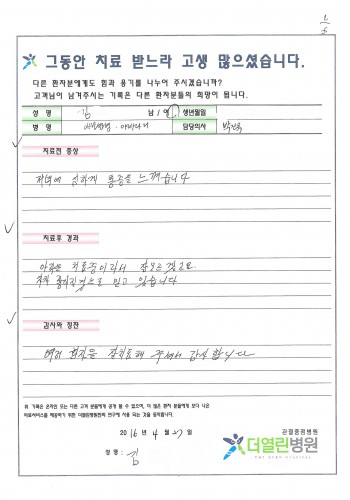 그동안 치료 받느라 고생 많으셨습니다.
다른 환자분에게도 힘과 용기를 나누어 주시겠습니까?
고객님이 남겨주시는 기록은 다른 환자분들의 희망이 됩니다.
성 명 김 남 / 여 생년월일
병 명 담당의사
치료전 증상
저녁에 심하게 통증을 느꼈습니다
치료후 경과
아직은 치료중이라서 잘모르겠고요
차차 좋아질것으로 믿고 있습니다
감사와 칭찬
여러 환자들 잘치료해 주셔서 감사합니다
위 기록은 온라인 또는 다른 고객 분들에게 공개 될 수 있으며, 더 많은 환자 분들에게 보다 나은
의료서비스를 제공하기 위한 더열린병원만의 연구에 사용 되는 것을 동의합니다.
2016 년 4 월 27 일
성 명: 김
관절중점병원
더열린병원
THE OPEN HOSPITAL